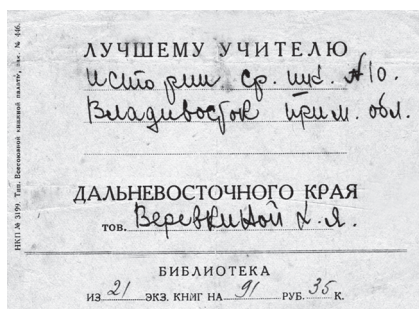 НКП № 3199. Тип. Всесоюзной книжной палаты, зак. № 446.
ЛУЧШЕМУ УЧИТЕЛЮ
истории ср. шк. №10.
Владивосток Прим. обл.
ДАЛЬНЕВОСТОЧНОГО КРАЯ
тов. Веревкиной Л.Я.
БИБЛИОТЕКА
ИЗ 21 ЭКЗ. КНИГ НА 91 РУБ. 35 К.